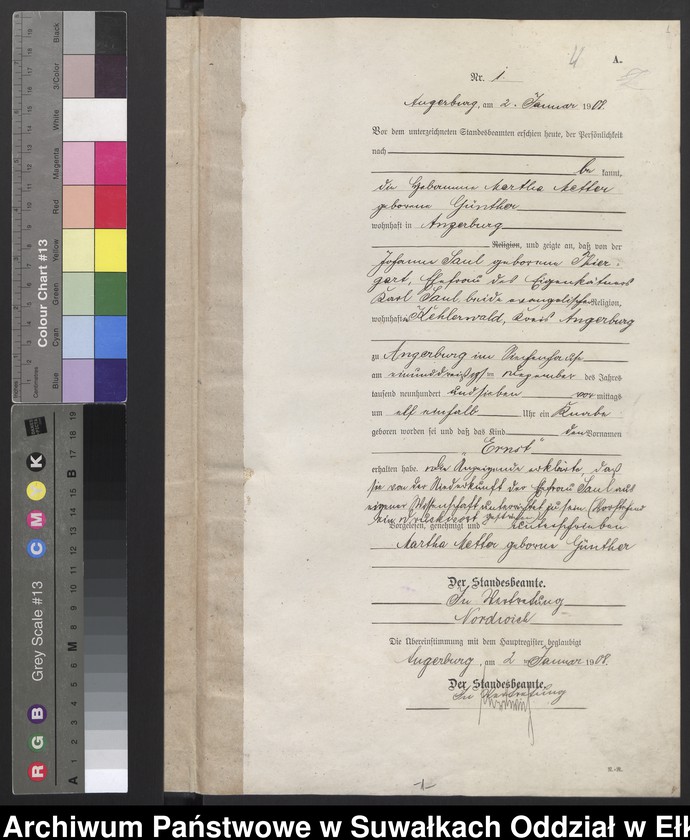 4
A.
Nr. 1
Angerburg, am 2. Januar 1908.
Vor dem unterzeichneten Standesbeamten erschien heute, der Persönlichkeit
nach
be kannt,
die Hebamme Martha Metter
geborene Günther
wohnhaft in Angerburg
Religion, und zeigte an, daß von der
Johanne Saul geborene Thier-
gart, Ehefrau des Eigenkätners
Karl Saul, beide evangelischer Religion,
wohnhaft Kehlerwald, Kreis Angerburg
zu Angerburg im Siechenhause
am einunddreißigsten Dezember des Jahres
tausend neunhundert und sieben vor mittags
um elf einhalb Uhr ein Knabe
geboren worden sei und daß das Kind den Vornamen
"Ernst"
erhalten habe. Die Anzeigende erklärte, daß
sie von der Niederkunft der Ehefrau Saul aus
eigener Wissenschaft unterrichtet zu sein (Vorstehend
ein Druckwort gestrichen
Vorgelesen, genehmigt und unterschrieben
Martha Metter geborene Günther
Der Standesbeamte.
In Vertretung
Nordwich
Die Übereinstimmung mit dem Hauptregister beglaubigt
Angerburg, am 2 Januar 1908.
Der Standesbeamte.
In Vertretung
-1-
Colour Chart #13
Blue
Cyan
Green
Yellow
Red
Magenta
White
3/Color
Black
Centimetres
Inches
Grey Scale #13
R G B
C M Y K
A 1 2 3 4 5 6 M 8 9 10 11 12 13 14 15 B 17 18 19
Archiwum Państwowe w Suwałkach Oddział w Ełk